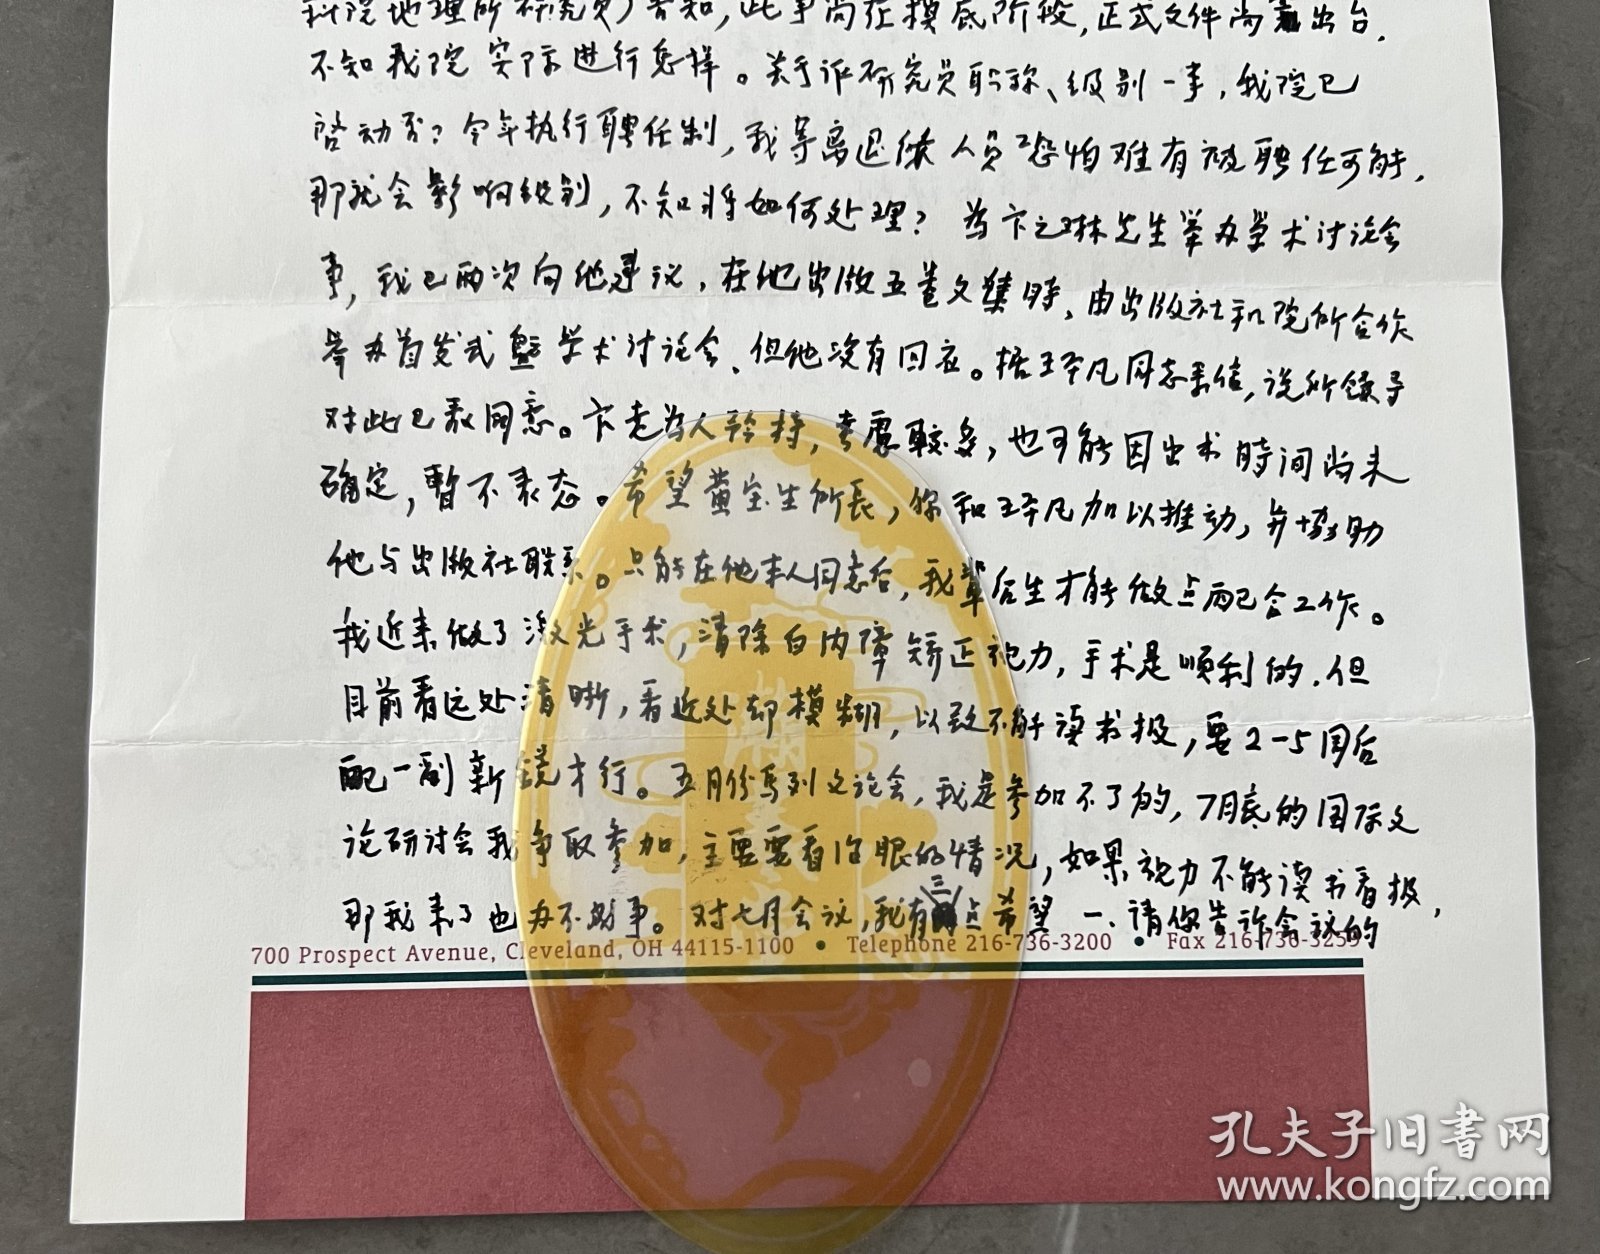 科院地理所研究员）告知，此事尚在摸底阶段，正式文件尚未出台，
不知我院实际进行怎样。关于评研究员职称、级别一事，我院已
启动否？今年执行聘任制，我等离退休人员恐怕难有被聘任可能，
那就会影响级别，不知将如何处理？为卞之琳先生举办学术讨论会
事，我已两次向他建议，在他出版五卷文集时，由出版社和院所合作
举办首发式暨学术讨论会，但他没有回应。据王平凡同志来信，说所领导
对此已表同意。卞老为人矜持，考虑较多，也可能因出书时间尚未
确定，暂不表态。希望黄宝生所长，你和王平凡加以推动，并协助
他与出版社联系。只能在他本人同意后，我辈后生才能做点配合工作。
我近来做了激光手术，清除白内障矫正视力，手术是顺利的，但
目前看远处清晰，看近处却模糊，以致不能读书报，要2-5周后
配一副新镜才行。五月份马列文论会，我是参加不了的，7月底的国际文
论研讨会我争取参加，主要要看得眼的情况，如果视力不能读书看报，
那我来了也办不了事。对七月会议，我有三点希望 一、请你告诉会议的
700 Prospect Avenue, Cleveland, OH 44115-1100 • Telephone 216-736-3200 • Fax 216-736-3259
孔夫子旧书网
www.kongfz.com